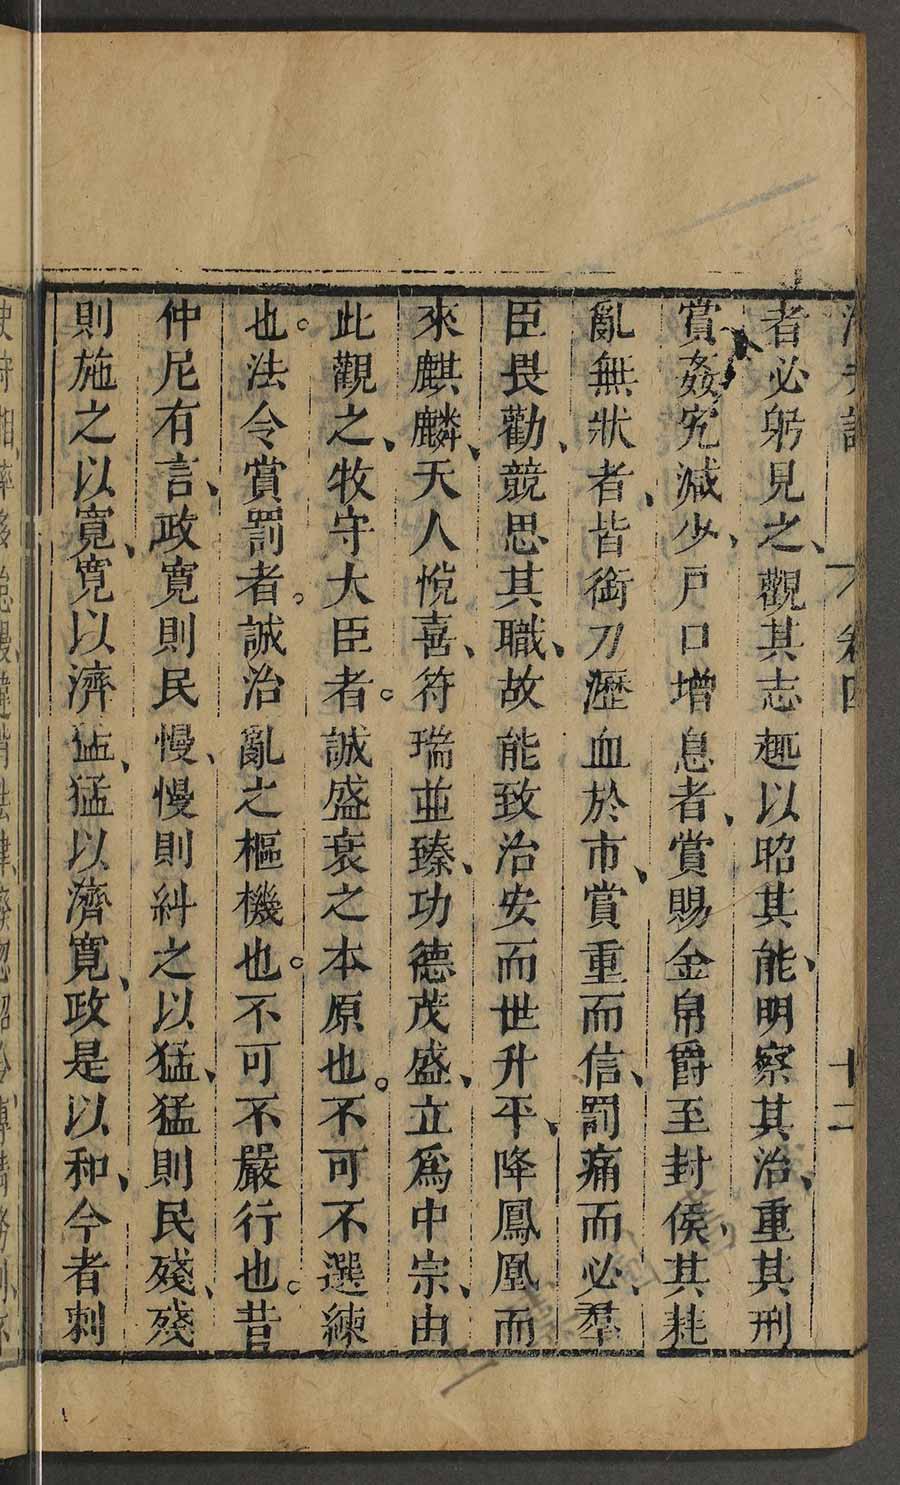 卷四
十二
者必躬見之、觀其志趣以昭其能、明察其治、重其刑
賞、姦宄減少、戶口增息者、賞賜金帛爵至封侯、其耗
亂無狀者、皆銜刀瀝血於市、賞重而信、罰痛而必、羣
臣畏勸、競思其職、故能致治安而世升平、降鳳凰而
來麒麟、天人悅喜、符瑞並臻、功德茂盛、立爲中宗、由
此觀之、牧守大臣者。誠盛衰之本原也。不可不選練
也。法令賞罰者。誠治亂之樞機也。不可不嚴行也。昔
仲尼有言、政寬則民慢、慢則糾之以猛、猛則民殘、殘
則施之以寬、寬以濟猛、猛以濟寬、政是以和、今者刺